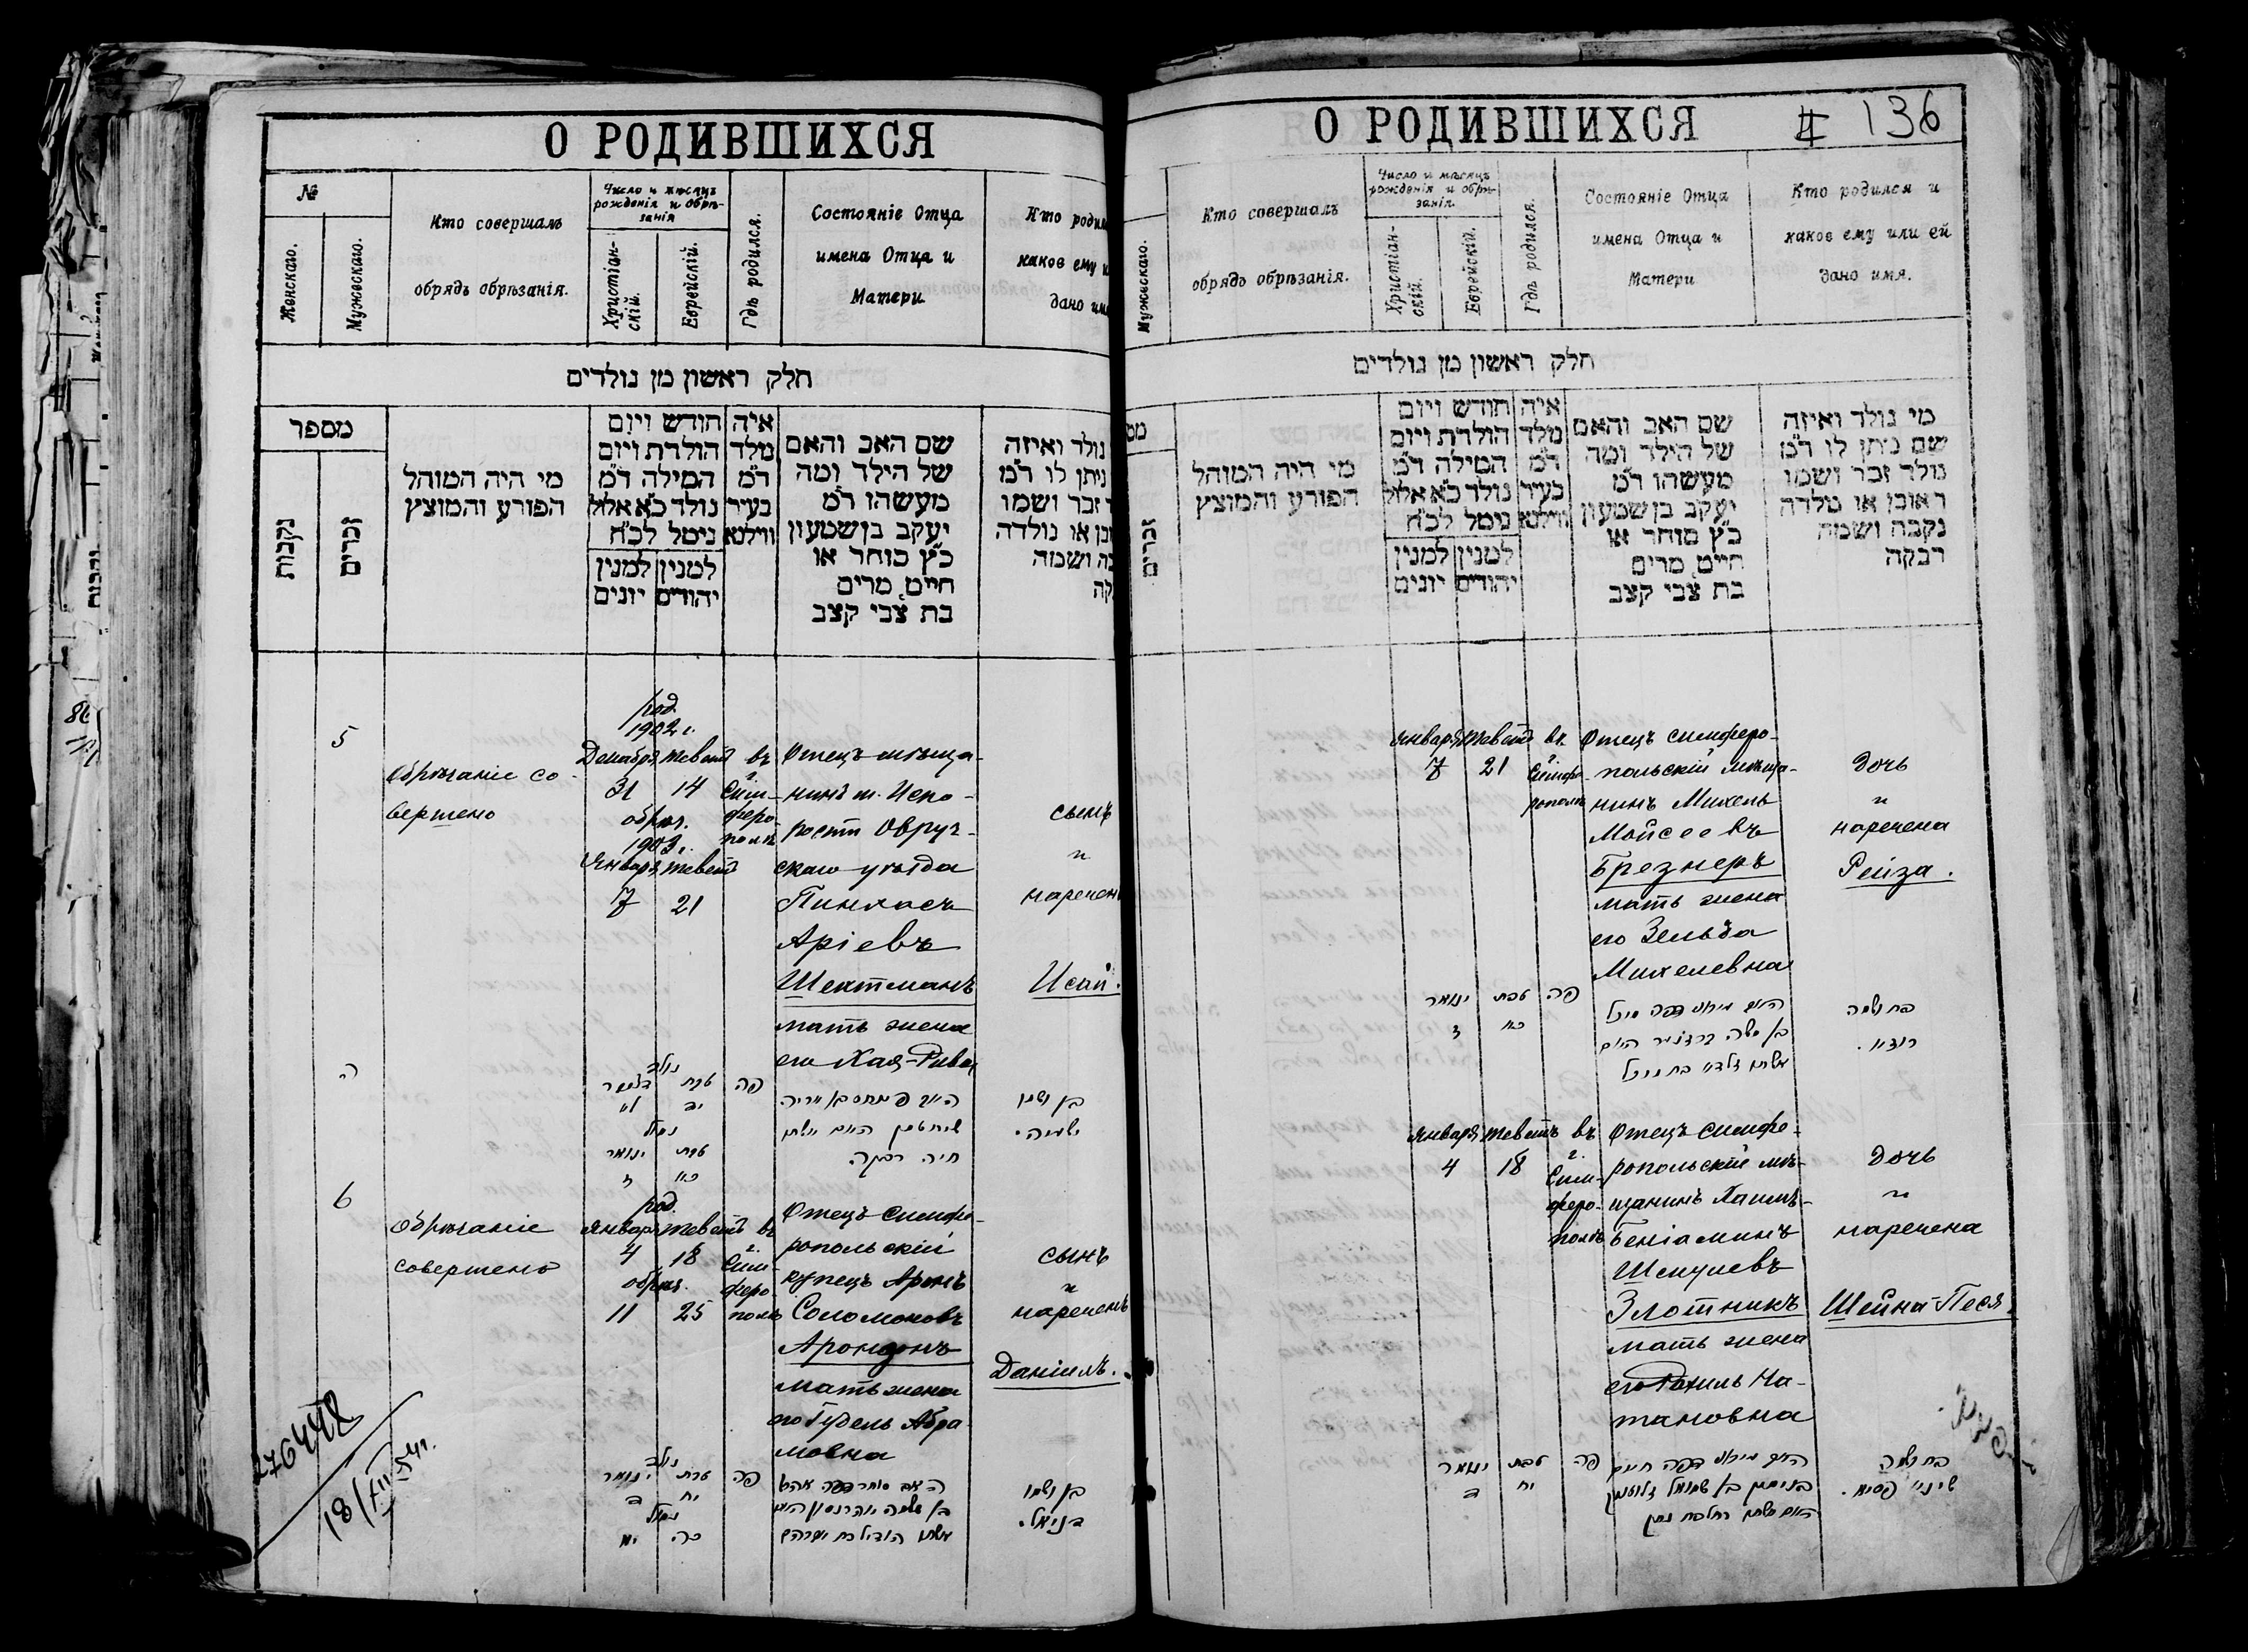 О РОДИВШИХСЯ
№
Женскаго.
Мужескаго.
Кто совершалъ
обрядъ обрѣзанія.
Число и мѣсяцъ
рожденія и обрѣ-
занія
Христіан-
скій.
Еврейскій.
Гдѣ родился.
Состояніе Отца
имена Отца и
Матери
Кто родил
каков ему и
дано им
חלק ראשון מן נולדים
מספר
נקבות
זכרים
מי היה המוהל
הפורע והמוצץ
חודש ויום
הולדת ויום
המילה ד״מ
נולד כ״א אלול
נימל לכ״ח
למנין למנין
יהודים יונים
איה
מלד
ד״מ
בעיר
ווילנא
שם האב והאם
של הילד ומה
מעשהו ד״מ
יעקב בן שמעון
כ״ץ סוחר או
חייט מרים
בת צבי קצב
נולד ואיזה
ניתן לו ד״מ
זכר ושמו
או נולדה
ושמה
5
Обрѣзаніе со-
вершено
род.
1902 г.
Декабря Тевет
31 14
обрѣз.
1903 г.
Января Тевет
7 21
въ
г.
Сим-
феро-
поль
Отецъ мѣща-
нинъ м. Иско-
рость Овруч-
скаго уѣзда
Пинхасъ
Аріевъ
Шехтманъ
мать жена
его Хая-Рива
сынъ
и
наречен
Исай.
ה
נולד
דצמבר טבת
לא יד
נימול
ינואר טבת
ז כא
פה
חיה רבקה
בן ושמו
ישעיה.
6
Обрѣзаніе
совершено
род.
Января Тевет
4 18
обрѣз.
11 25
въ
г.
Сим-
феро-
поль
Отецъ симфе-
ропольскій
купецъ Аронъ
Соломоновъ
Аронзонъ
мать жена
его Гудель Абра-
мовна
сынъ
и
нареченъ
Даніилъ.
נולד
ינואר טבת
ד יח
נימול
יא כה
פה
בן ושמו
דניאל.
276448
18/XII-54 г.
О РОДИВШИХСЯ
# 136
Мужескаго.
Кто совершалъ
обрядъ обрѣзанія.
Число и мѣсяцъ
рожденія и обрѣ-
занія.
Христіан-
скій.
Еврейскій.
Гдѣ родился.
Состояніе Отца
имена Отца и
Матери
Кто родился и
каков ему или ей
дано имя.
חלק ראשון מן נולדים
זכרים
מי היה המוהל
הפורע והמוצץ
חודש ויום
הולדת ויום
המילה ד״מ
נולד כ״א אלול
נימל לכ״ח
למנין למנין
יהודים יונים
איה
מלד
ד״מ
בעיר
ווילנא
שם האב והאם
של הילד ומה
מעשהו ד״מ
יעקב בן שמעון
כ״ץ סוחר או
חייט מרים
בת צבי קצב
מי נולד ואיזה
שם ניתן לו ד״מ
נולד זכר ושמו
ראובן או נולדה
נקבה ושמה
רבקה
Января Тевет
7 21
въ
г.
Симфе-
рополь
Отецъ симферо-
польскій мѣща-
нинъ Михель
Мойсеевъ
Брезнеръ
мать жена
его Зельда
Михелевна
дочь
и
наречена
Рейза.
ינואר טבת פה
ז כא
בת ושמה
Января Теветъ
4 18
въ
г.
Сим-
феро-
поль
Отецъ симфе-
ропольскій мѣ-
щанинъ Хаимъ-
Беніаминъ
Шмулевъ
Злотникъ
мать жена
его Рахиль На-
тановна
дочь
и
наречена
Шейна-Песя.
ינואר טבת פה
ד יח
בת ושמה